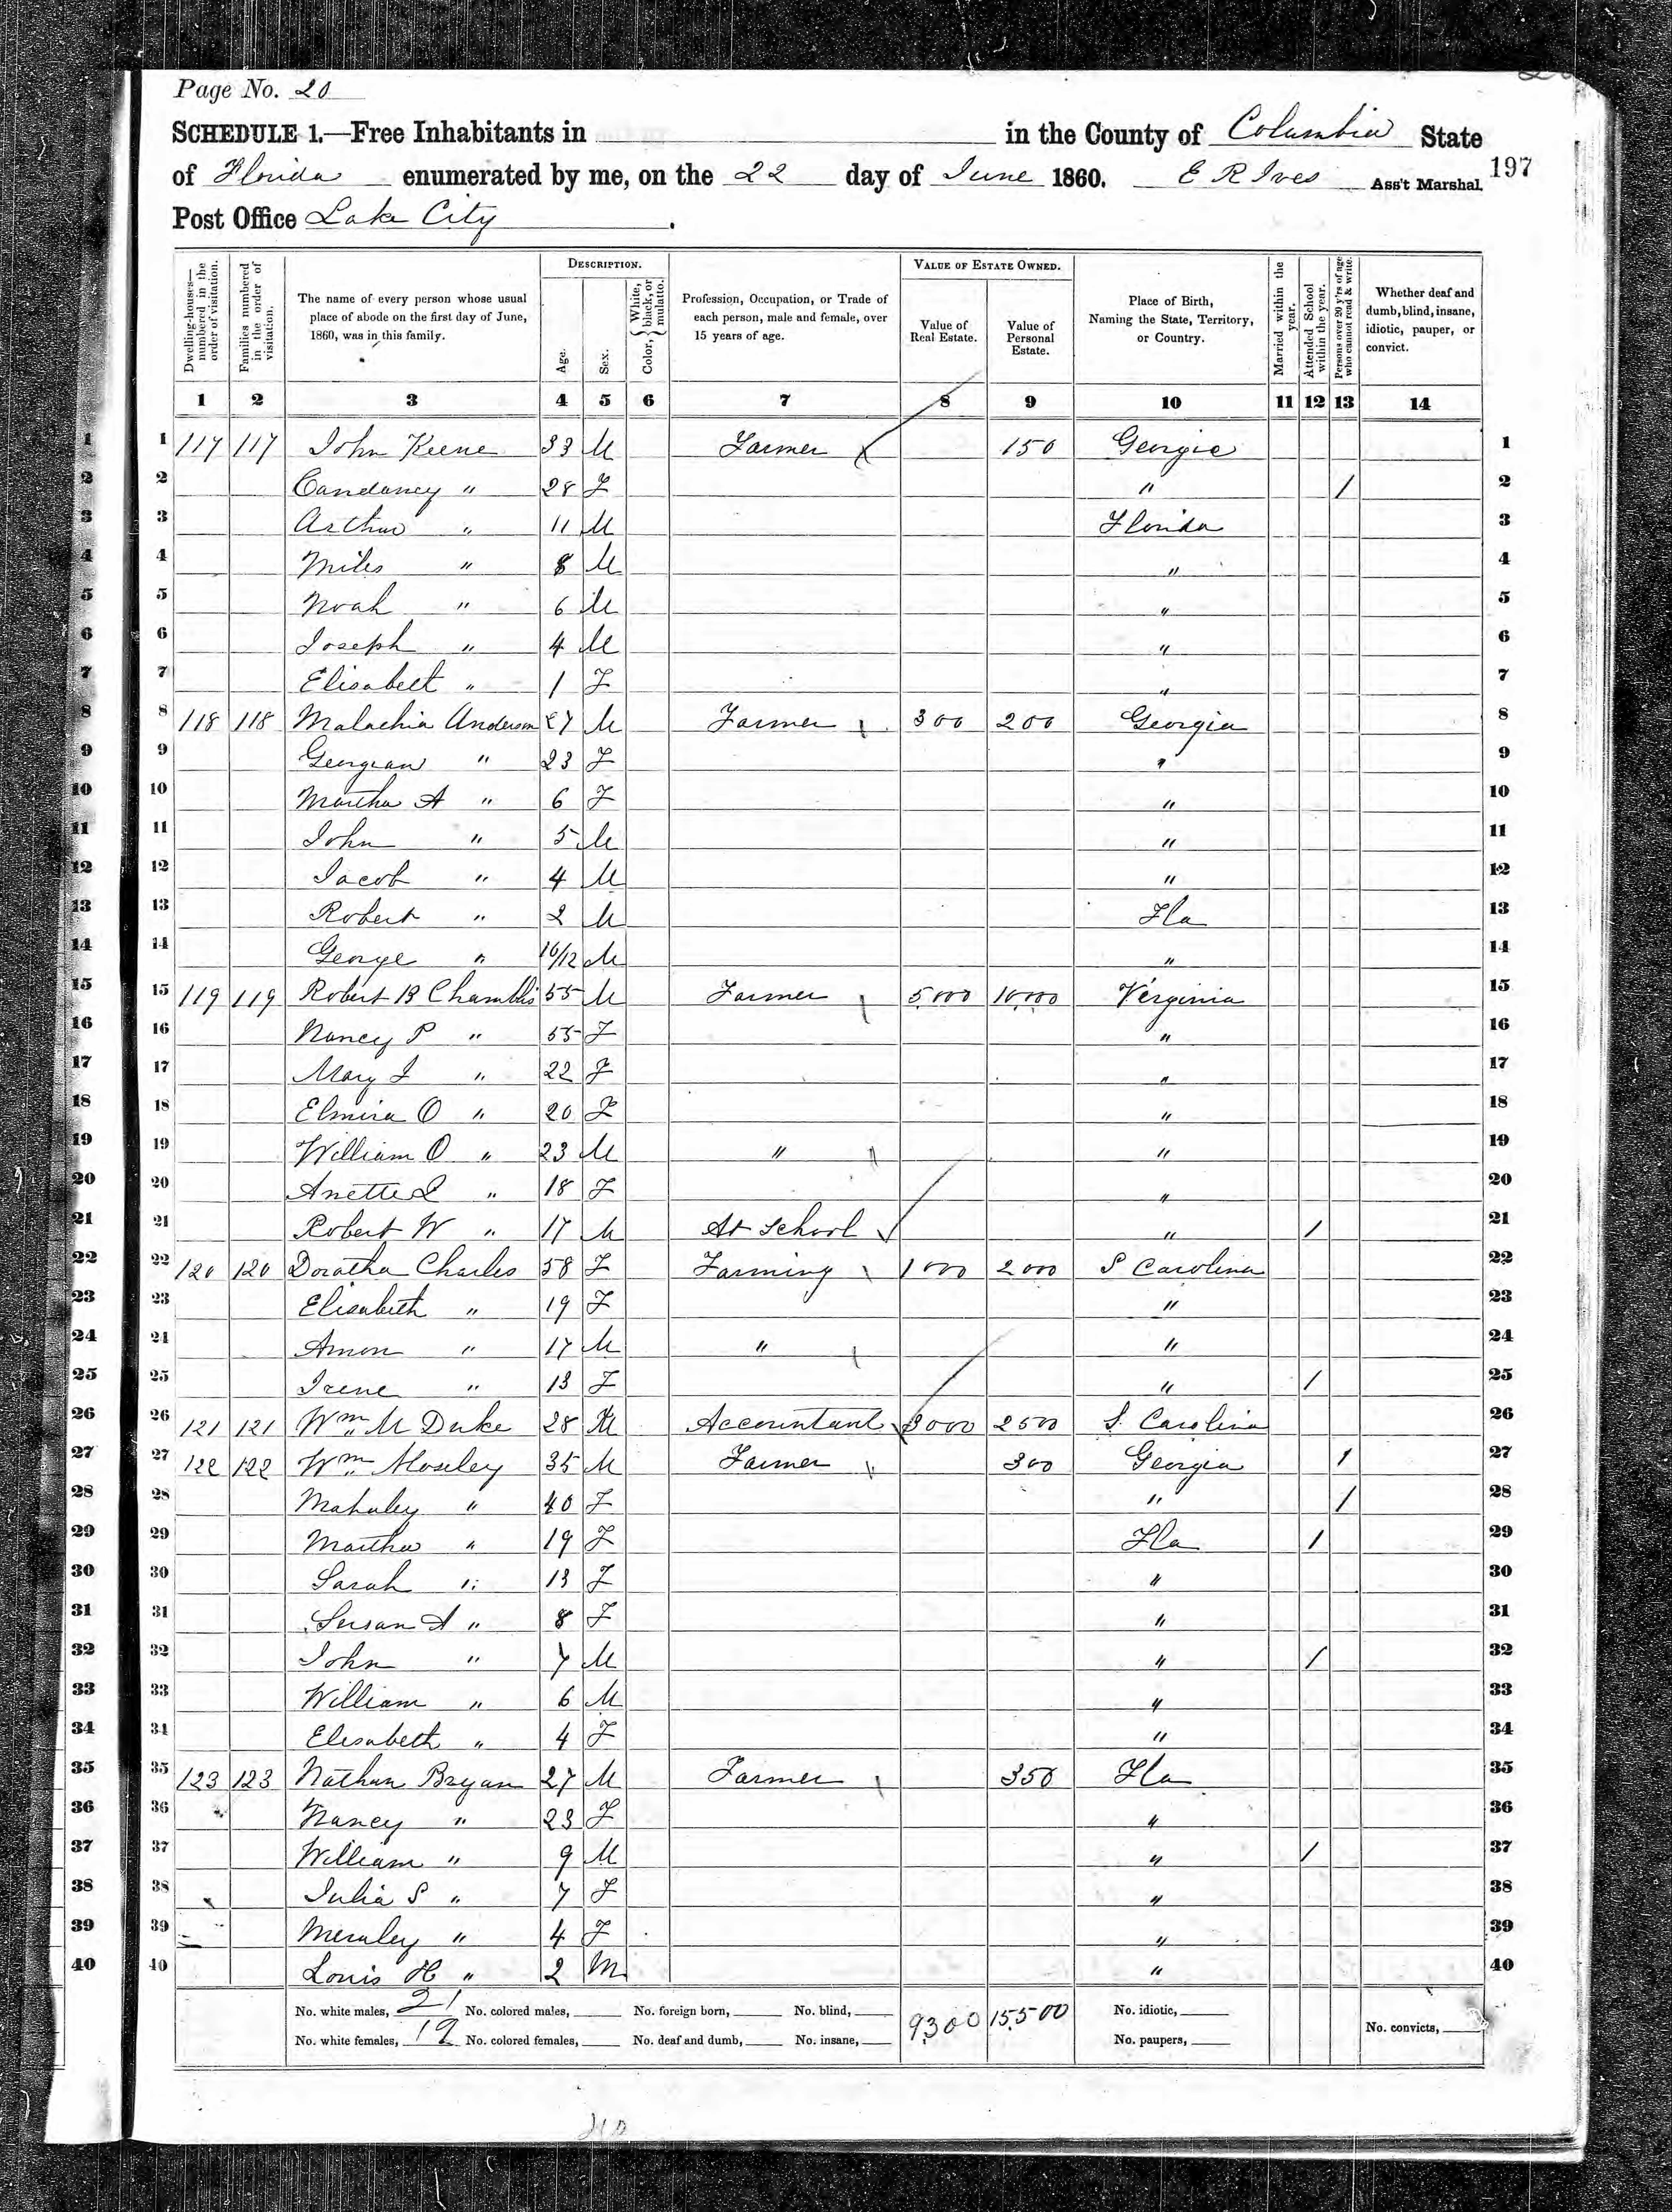 Page No. 20
SCHEDULE 1.—Free Inhabitants in in the County of Columbia State
of Florida enumerated by me, on the 22 day of June 1860. E R Ives Ass't Marshal. 197
Post Office Lake City .
Dwelling-houses—numbered in the order of visitation. Families numbered in the order of visitation. The name of every person whose usual place of abode on the first day of June, 1860, was in this family. DESCRIPTION. Age. Sex. Color, White, black, or mulatto. Profession, Occupation, or Trade of each person, male and female, over 15 years of age. VALUE OF ESTATE OWNED. Value of Real Estate. Value of Personal Estate. Place of Birth, Naming the State, Territory, or Country. Married within the year. Attended School within the year. Persons over 20 y'rs of age who cannot read & write. Whether deaf and dumb, blind, insane, idiotic, pauper, or convict.
1 2 3 4 5 6 7 8 9 10 11 12 13 14
1 1 117 117 John Keene 33 M Farmer 150 Georgia 1
2 2 Candancy " 28 F " / 2
3 3 Arthur " 11 M Florida 3
4 4 Miles " 8 M " 4
5 5 Noah " 6 M " 5
6 6 Joseph " 4 M " 6
7 7 Elisabeth " 1 F " 7
8 8 118 118 Malachia Anderson 27 M Farmer 300 200 Georgia 8
9 9 Georgian " 23 F " 9
10 10 Martha A " 6 F " 10
11 11 John " 5 M " 11
12 12 Jacob " 4 M " 12
13 13 Robert " 2 M Fla 13
14 14 George " 10/12 M " 14
15 15 119 119 Robert B Chamblis 55 M Farmer 5000 10000 Verginia 15
16 16 Nancy P " 55 F " 16
17 17 Mary J " 22 F " 17
18 18 Elmira O " 20 F " 18
19 19 William O " 23 M " " 19
20 20 Anette " 18 F " 20
21 21 Robert W " 17 M At School " / 21
22 22 120 120 Doratha Charles 58 F Farming 1000 2000 S Carolina 22
23 23 Elisabeth " 19 F " 23
24 24 Amon " 17 M " " 24
25 25 Irene " 13 F " / 25
26 26 121 121 Wm M Duke 28 M Accountant 3000 2500 S. Carolina 26
27 27 122 122 Wm Moseley 35 M Farmer 300 Georgia / 27
28 28 Mahaley " 40 F " / 28
29 29 Martha " 19 F Fla / 29
30 30 Sarah " 13 F " 30
31 31 Susan A " 8 F " 31
32 32 John " 7 M " / 32
33 33 William " 6 M " 33
34 34 Elesabeth " 4 F " 34
35 35 123 123 Nathan Bryan 27 M Farmer 350 Fla 35
36 36 Nancy " 23 F " 36
37 37 William " 9 M " / 37
38 38 Julia S " 7 F " 38
39 39 " 4 F " 39
40 40 Louis H " 2 M " 40
No. white males, 21 No. colored males, No. foreign born, No. blind, 9300 15500 No. idiotic,
No. white females, 19 No. colored females, No. deaf and dumb, No. insane, No. paupers, No. convicts,